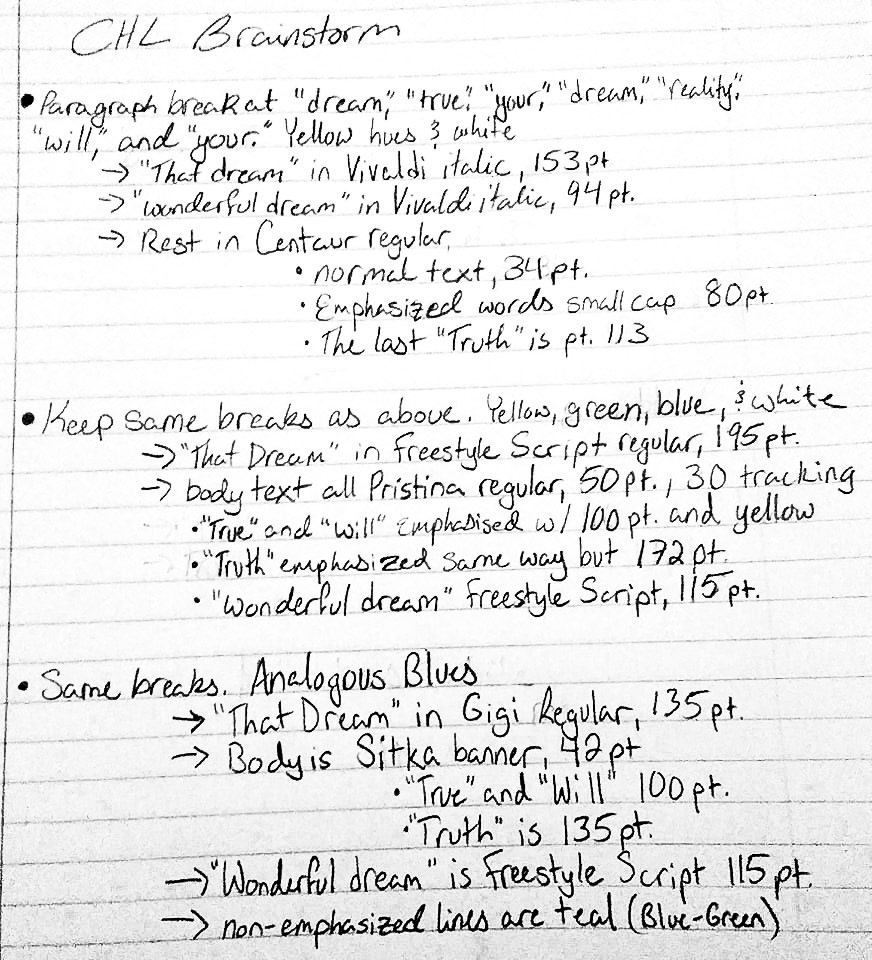 CHL Brainstorm
• Paragraph break at "dream," "true." "your," "dream," "reality,"
"will," and "your." Yellow hues & white
→ "That dream" in Vivaldi italic, 153pt
→ "wonderful dream" in Vivaldi italic, 94pt.
→ Rest in Centaur regular,
• normal text, 34pt.
• Emphasized words small cap 80pt
• The last "Truth" is pt. 113
• Keep same breaks as above. Yellow, green, blue, & white
→ "That Dream" in Freestyle Script regular, 195pt.
→ body text all Pristina regular, 50pt., 30 tracking
• "True" and "will" Emphasised w/ 100pt. and yellow
• "Truth" emphasized same way but 172pt.
• "Wonderful dream" Freestyle Script, 115pt.
• Same breaks. Analogous Blues
→ "That Dream" in Gigi Regular, 135pt.
→ Body is Sitka banner, 42pt
• "True" and "Will" 100pt.
• "Truth" is 135pt.
→ "Wonderful dream" is Freestyle Script 115pt.
→ non-emphasized lines are teal (Blue-Green)